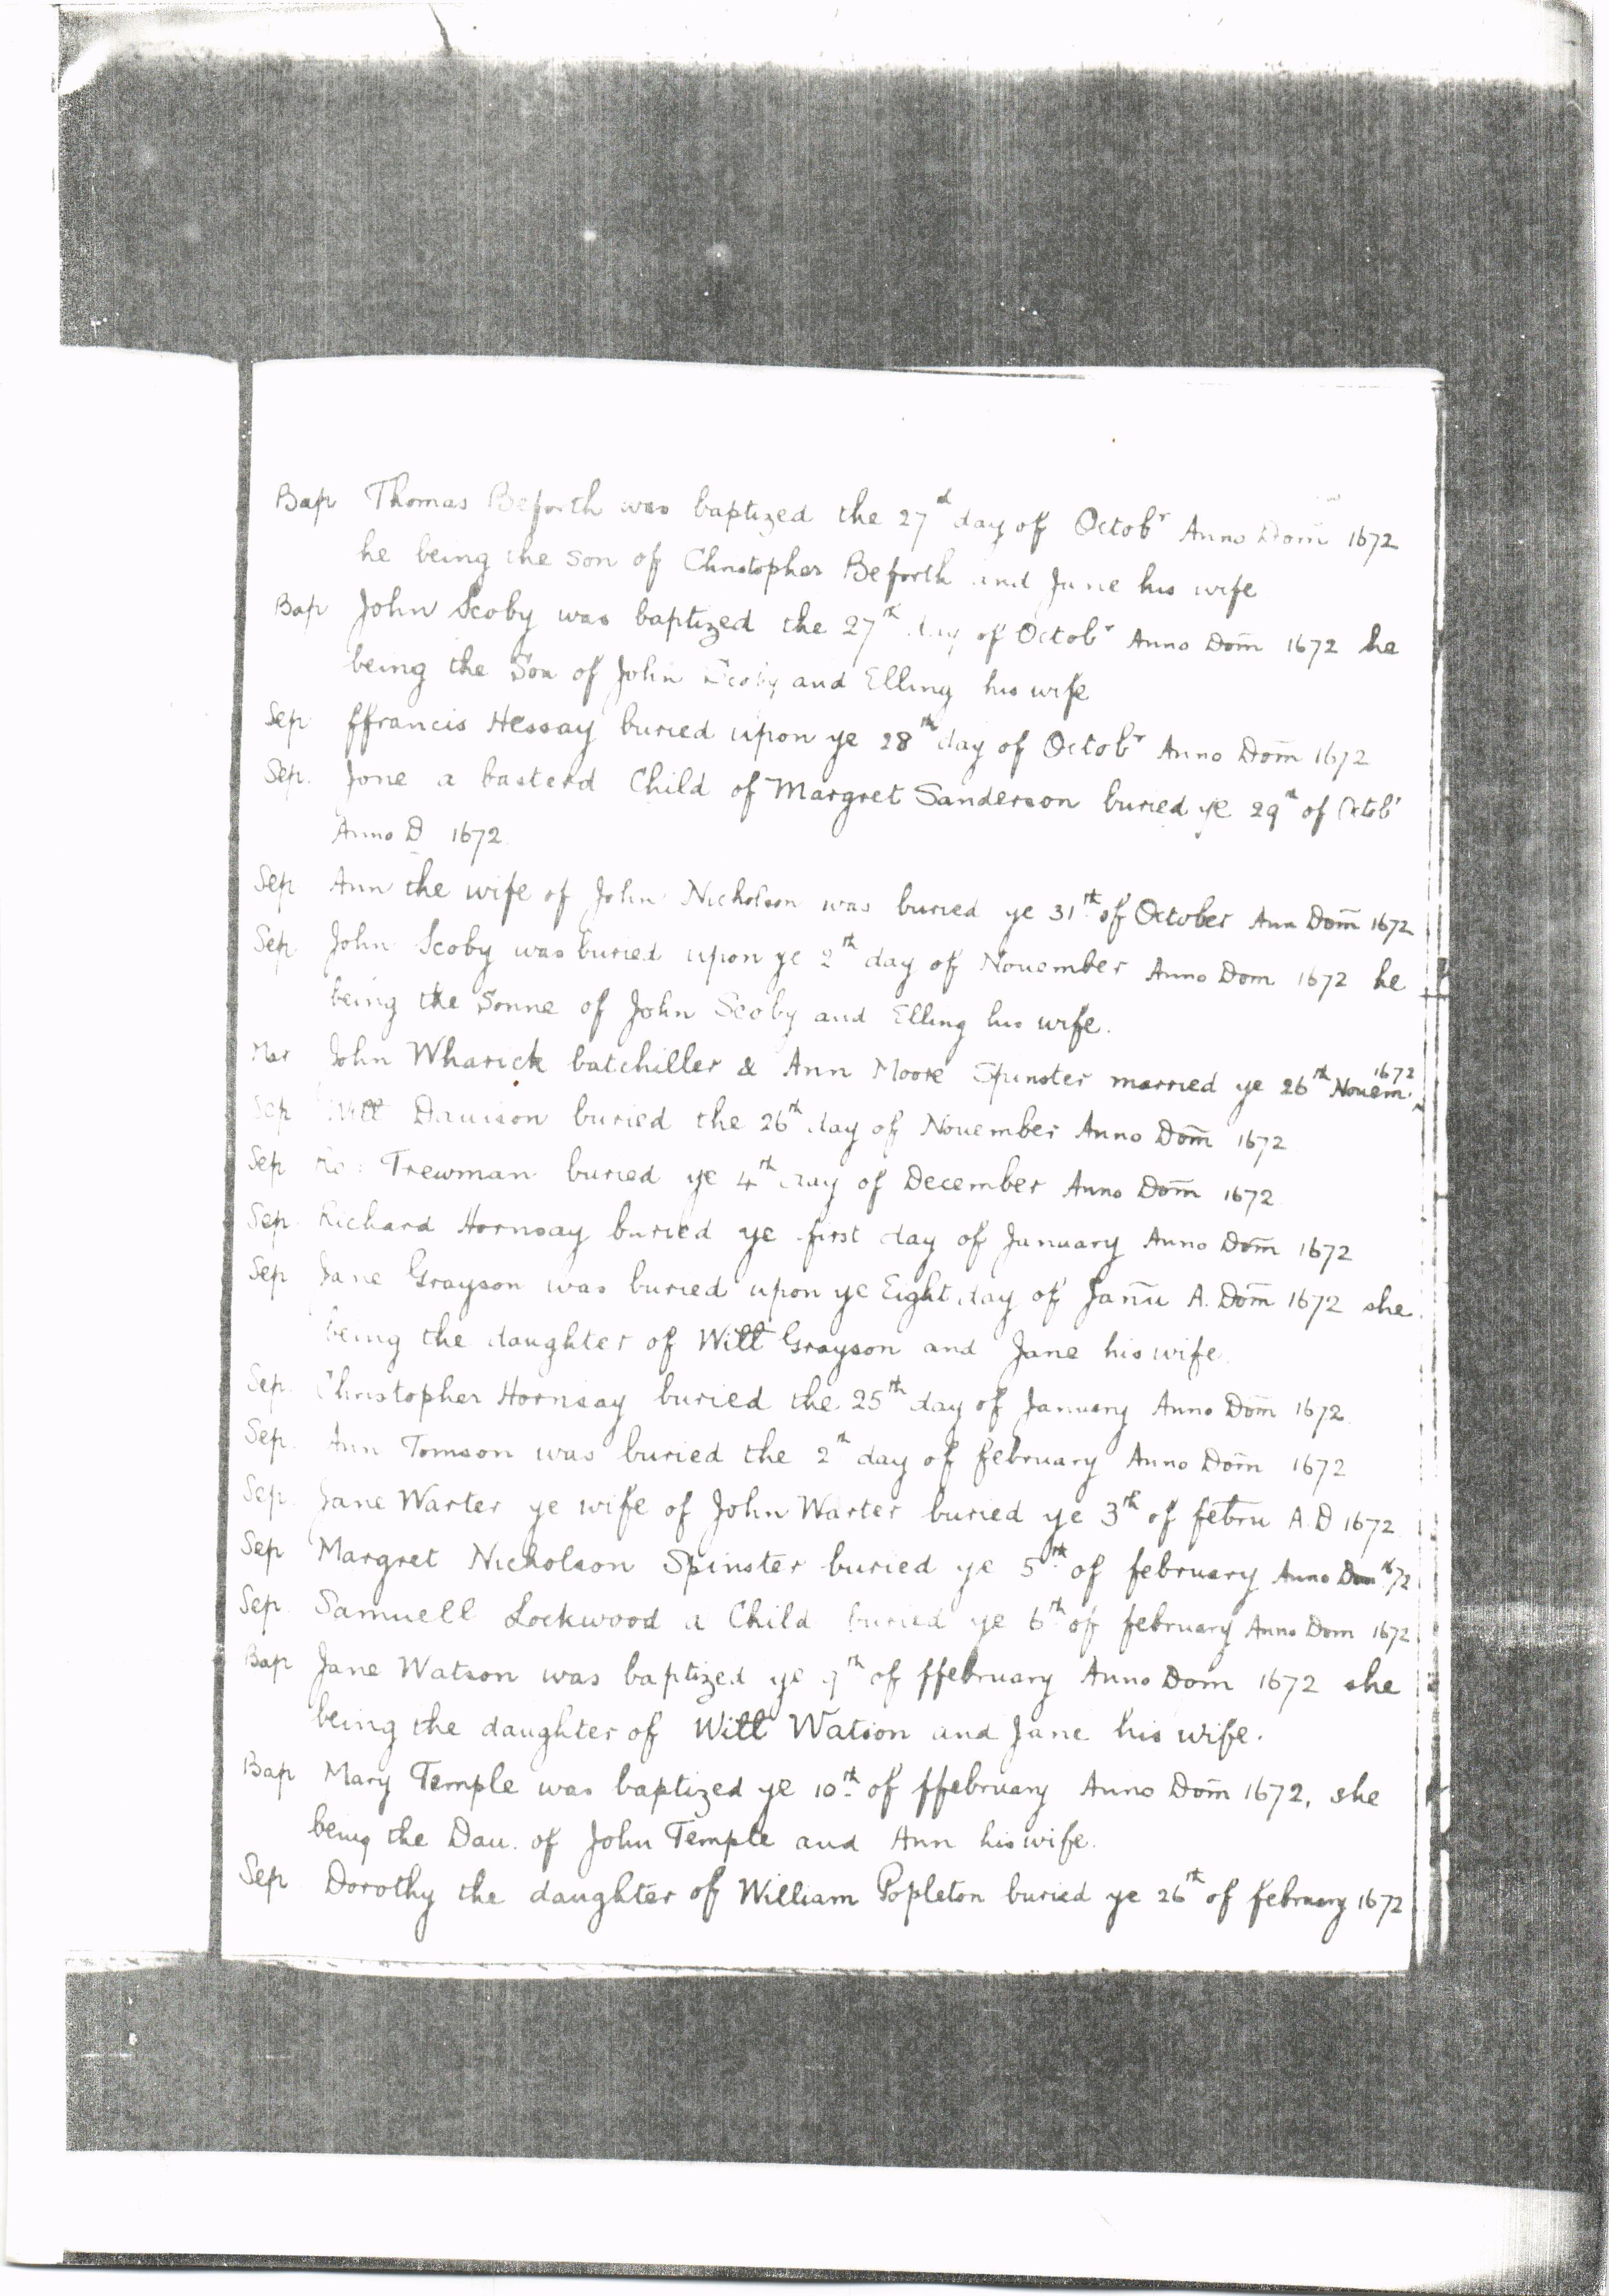 Bap Thomas Beforth was baptized the 27d day of Octobr Anno Dom 1672
he being the son of Christopher Beforth and Jane his wife
Bap John Scoby was baptized the 27th day of Octobr Anno Dom̄ 1672 he
being the Son of John Scoby and Elling his wife
Sep ffrancis Hessay buried upon ye 28th day of Octobr Anno Dom̄ 1672
Sep. Jone a basterd Child of Margret Sanderson buried ye 29th of Octobr
Anno D 1672
Sep Ann the wife of John Nicholson was buried ye 31th of October Ann Dom̄ 1672
Sep John Scoby was buried upon ye 2th day of Nouember Anno Dom 1672 he
being the Sonne of John Scoby and Elling his wife.
Mar John Wharick batchiller & Ann Moore Spinster married ye 26th Nouem. 1672
Sep Will Dauison buried the 26th day of Nouember Anno Dom̄ 1672
Sep : Trewman buried ye 4th day of December Anno Dom̄ 1672
Sep Richard Hornsay buried ye first day of January Anno Dom̄ 1672
Sep Jane Grayson was buried upon ye Eight day of Janū A. Dom̄ 1672 she
being the daughter of Will Grayson and Jane his wife.
Sep. Christopher Hornsay buried the 25th day of January Anno Dom̄ 1672
Sep. Ann Tomson was buried the 2th day of february Anno Dom̄ 1672
Sep. Jane Warter ye wife of John Warter buried ye 3th of febru A.D 1672
Sep Margret Nicholson Spinster buried ye 5th of february Anno Dom 1672
Sep. Samuell Lockwood a Child buried ye 6th of february Anno Dom 1672
Bap Jane Watson was baptized ye 9th of ffebruary Anno Dom 1672 she
being the daughter of Will Watson and Jane his wife.
Bap Mary Temple was baptized ye 10th of ffebruary Anno Dom̄ 1672, she
being the Dau. of John Temple and Ann his wife.
Sep Dorothy the daughter of William Popleton buried ye 26th of february 1672